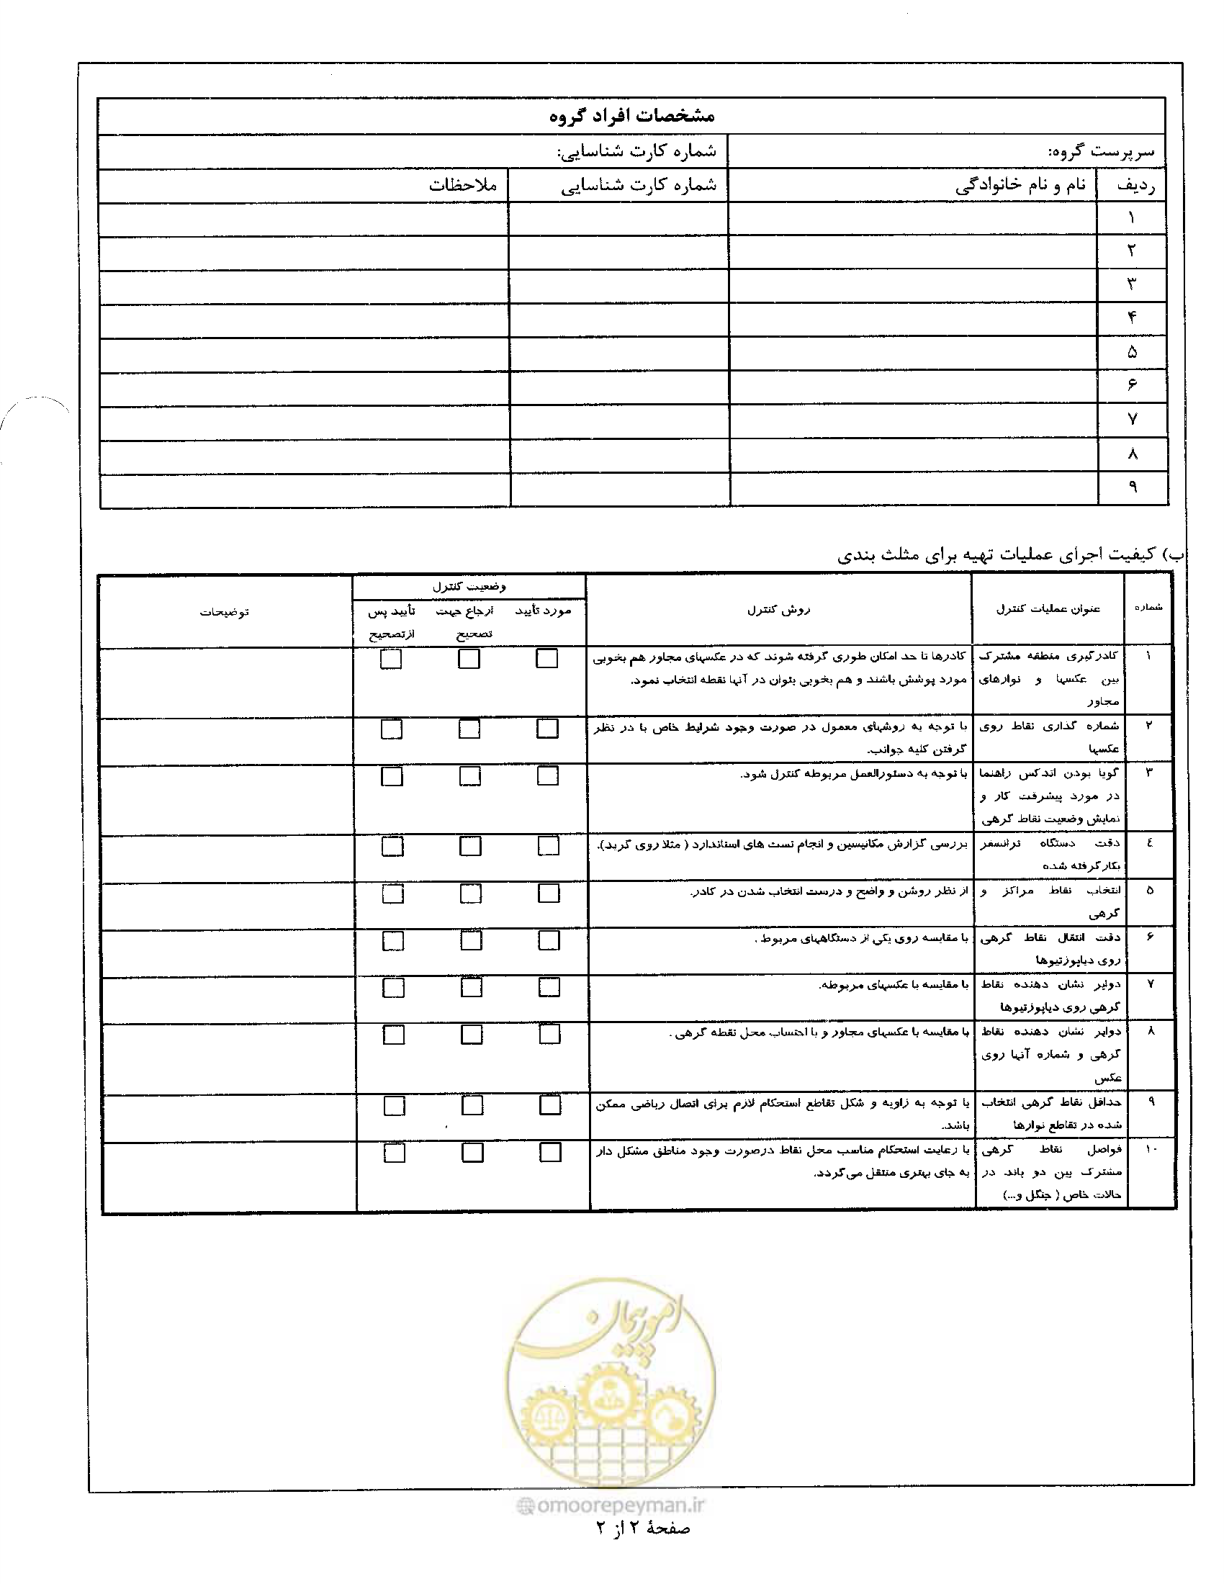 مشخصات افراد گروه
سرپرست گروه: شماره کارت شناسایی:
ردیف نام و نام خانوادگی شماره کارت شناسایی ملاحظات
۱
۲
۳
۴
۵
۶
۷
۸
۹
ب) کیفیت اجرای عملیات تهیه برای مثلث بندی
شماره عنوان عملیات کنترل روش کنترل وضعیت کنترل توضیحات
مورد تأیید ارجاع جهت تأیید پس
تصحیح ازتصحیح
۱ کادرگیری منطقه مشترک کادرها تا حد امکان طوری گرفته شوند که در عکسهای مجاور هم بخوبی
بین عکسها و نوارهای مورد پوشش باشند و هم بخوبی بتوان در آنها نقطه انتخاب نمود.
مجاور
۲ شماره گذاری نقاط روی با توجه به روشهای معمول در صورت وجود شرایط خاص با در نظر
عکسها گرفتن کلیه جوانب.
۳ گویا بودن اندکس راهنما با توجه به دستورالعمل مربوطه کنترل شود.
در مورد پیشرفت کار و
نمایش وضعیت نقاط گرهی
٤ دقت دستگاه ترانسفر بررسی گزارش مکانیسین و انجام تست های استاندارد ( مثلا روی گرید).
بکار گرفته شده
۵ انتخاب نقاط مراکز و از نظر روشن و واضح و درست انتخاب شدن در کادر.
گرهی
۶ دقت انتقال نقاط گرهی با مقایسه روی یکی از دستگاههای مربوط .
روی دیاپوزتیوها
۷ دوایر نشان دهنده نقاط با مقایسه با عکسهای مربوطه.
گرهی روی دیاپوزتیوها
۸ دوایر نشان دهنده نقاط با مقایسه با عکسهای مجاور و با احتساب محل نقطه گرهی .
گرهی و شماره آنها روی
عکس
۹ حداقل نقاط گرهی انتخاب با توجه به زاویه و شکل تقاطع استحکام لازم برای اتصال ریاضی ممکن
شده در تقاطع نوارها باشد.
۱۰ فواصل نقاط گرهی با رعایت استحکام مناسب محل نقاط درصورت وجود مناطق مشکل دار
مشترک بین دو باند در به جای بهتری منتقل می‌گردد.
حالات خاص ( جنگل و...)
امور پیمان
omoorepeyman.ir
صفحهٔ ۲ از ۲